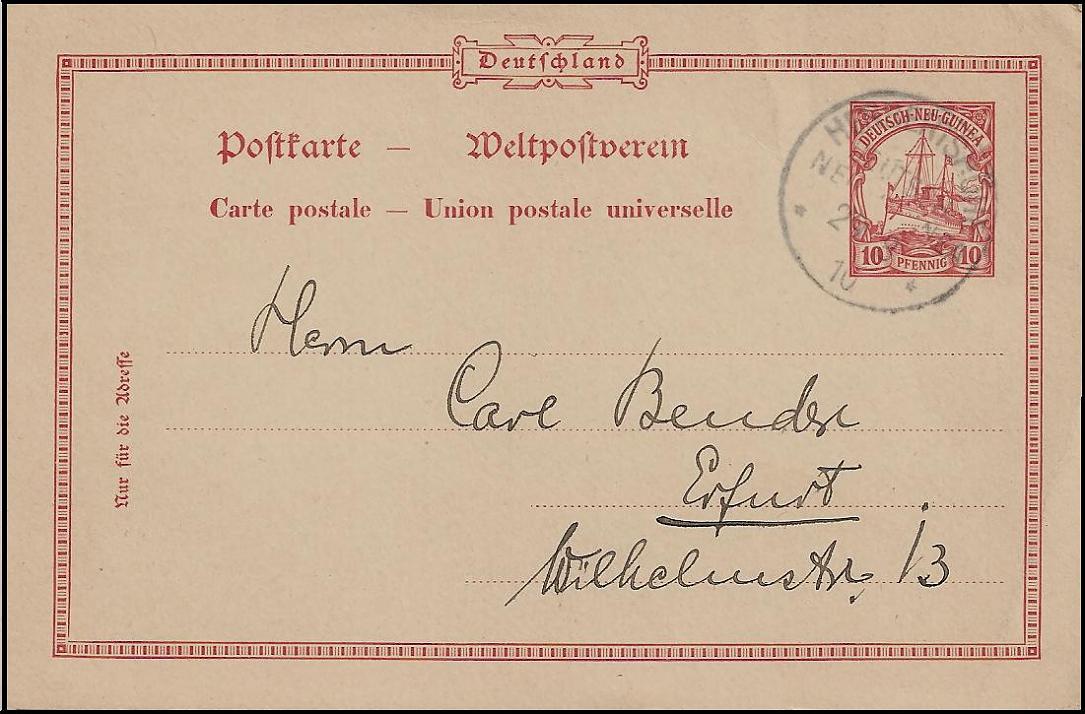 Deutschland
Postkarte — Weltpostverein
Carte postale — Union postale universelle
DEUTSCH-NEU-GUINEA
10 PFENNIG 10
10
Nur für die Adresse
Herrn
Carl Bender
Erfurt
Wilhelmstr. 13